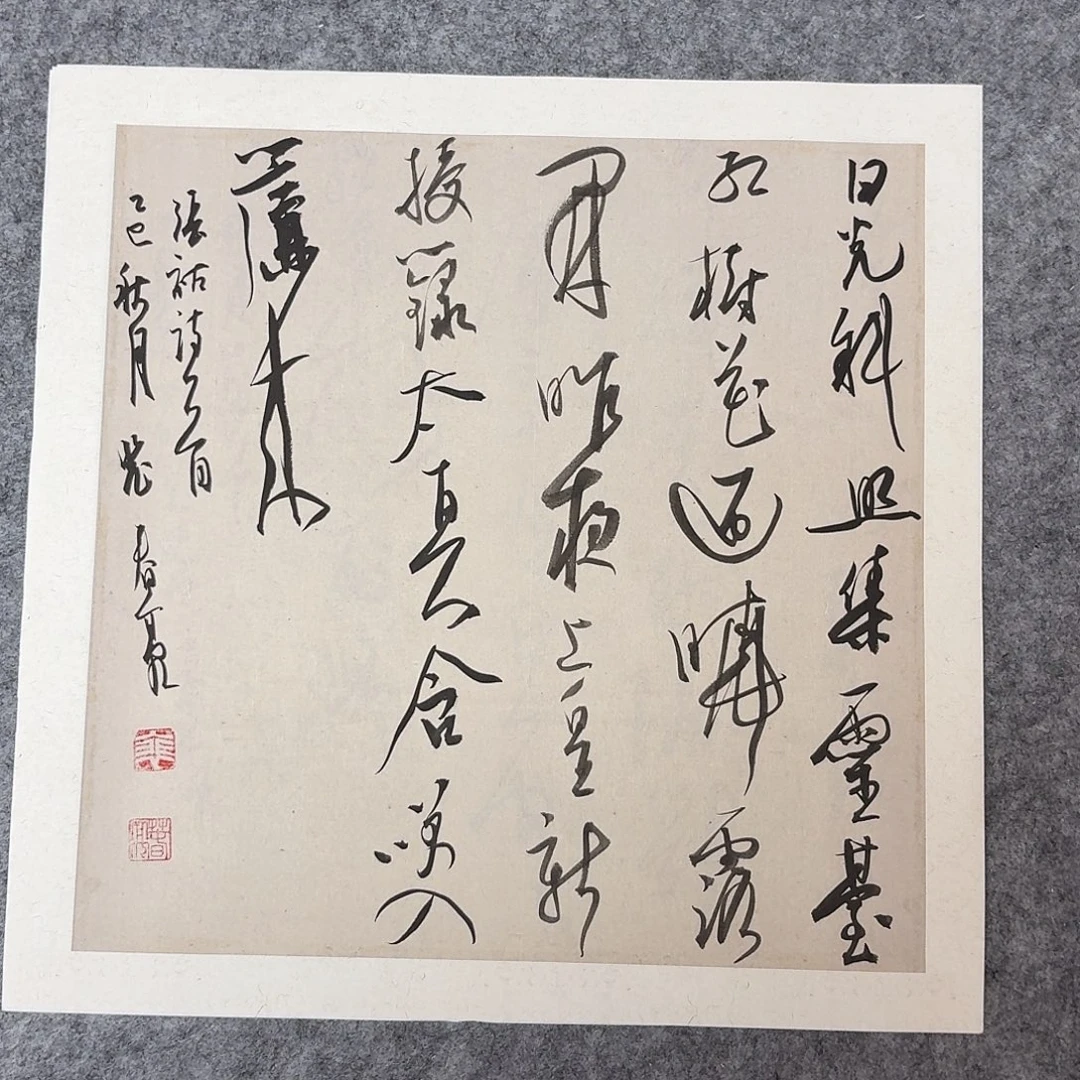 日光斜照集靈臺
紅樹花曉露
開昨夜上皇新
授籙太真含笑入
簾來
張祜詩首
乙巳秋月春